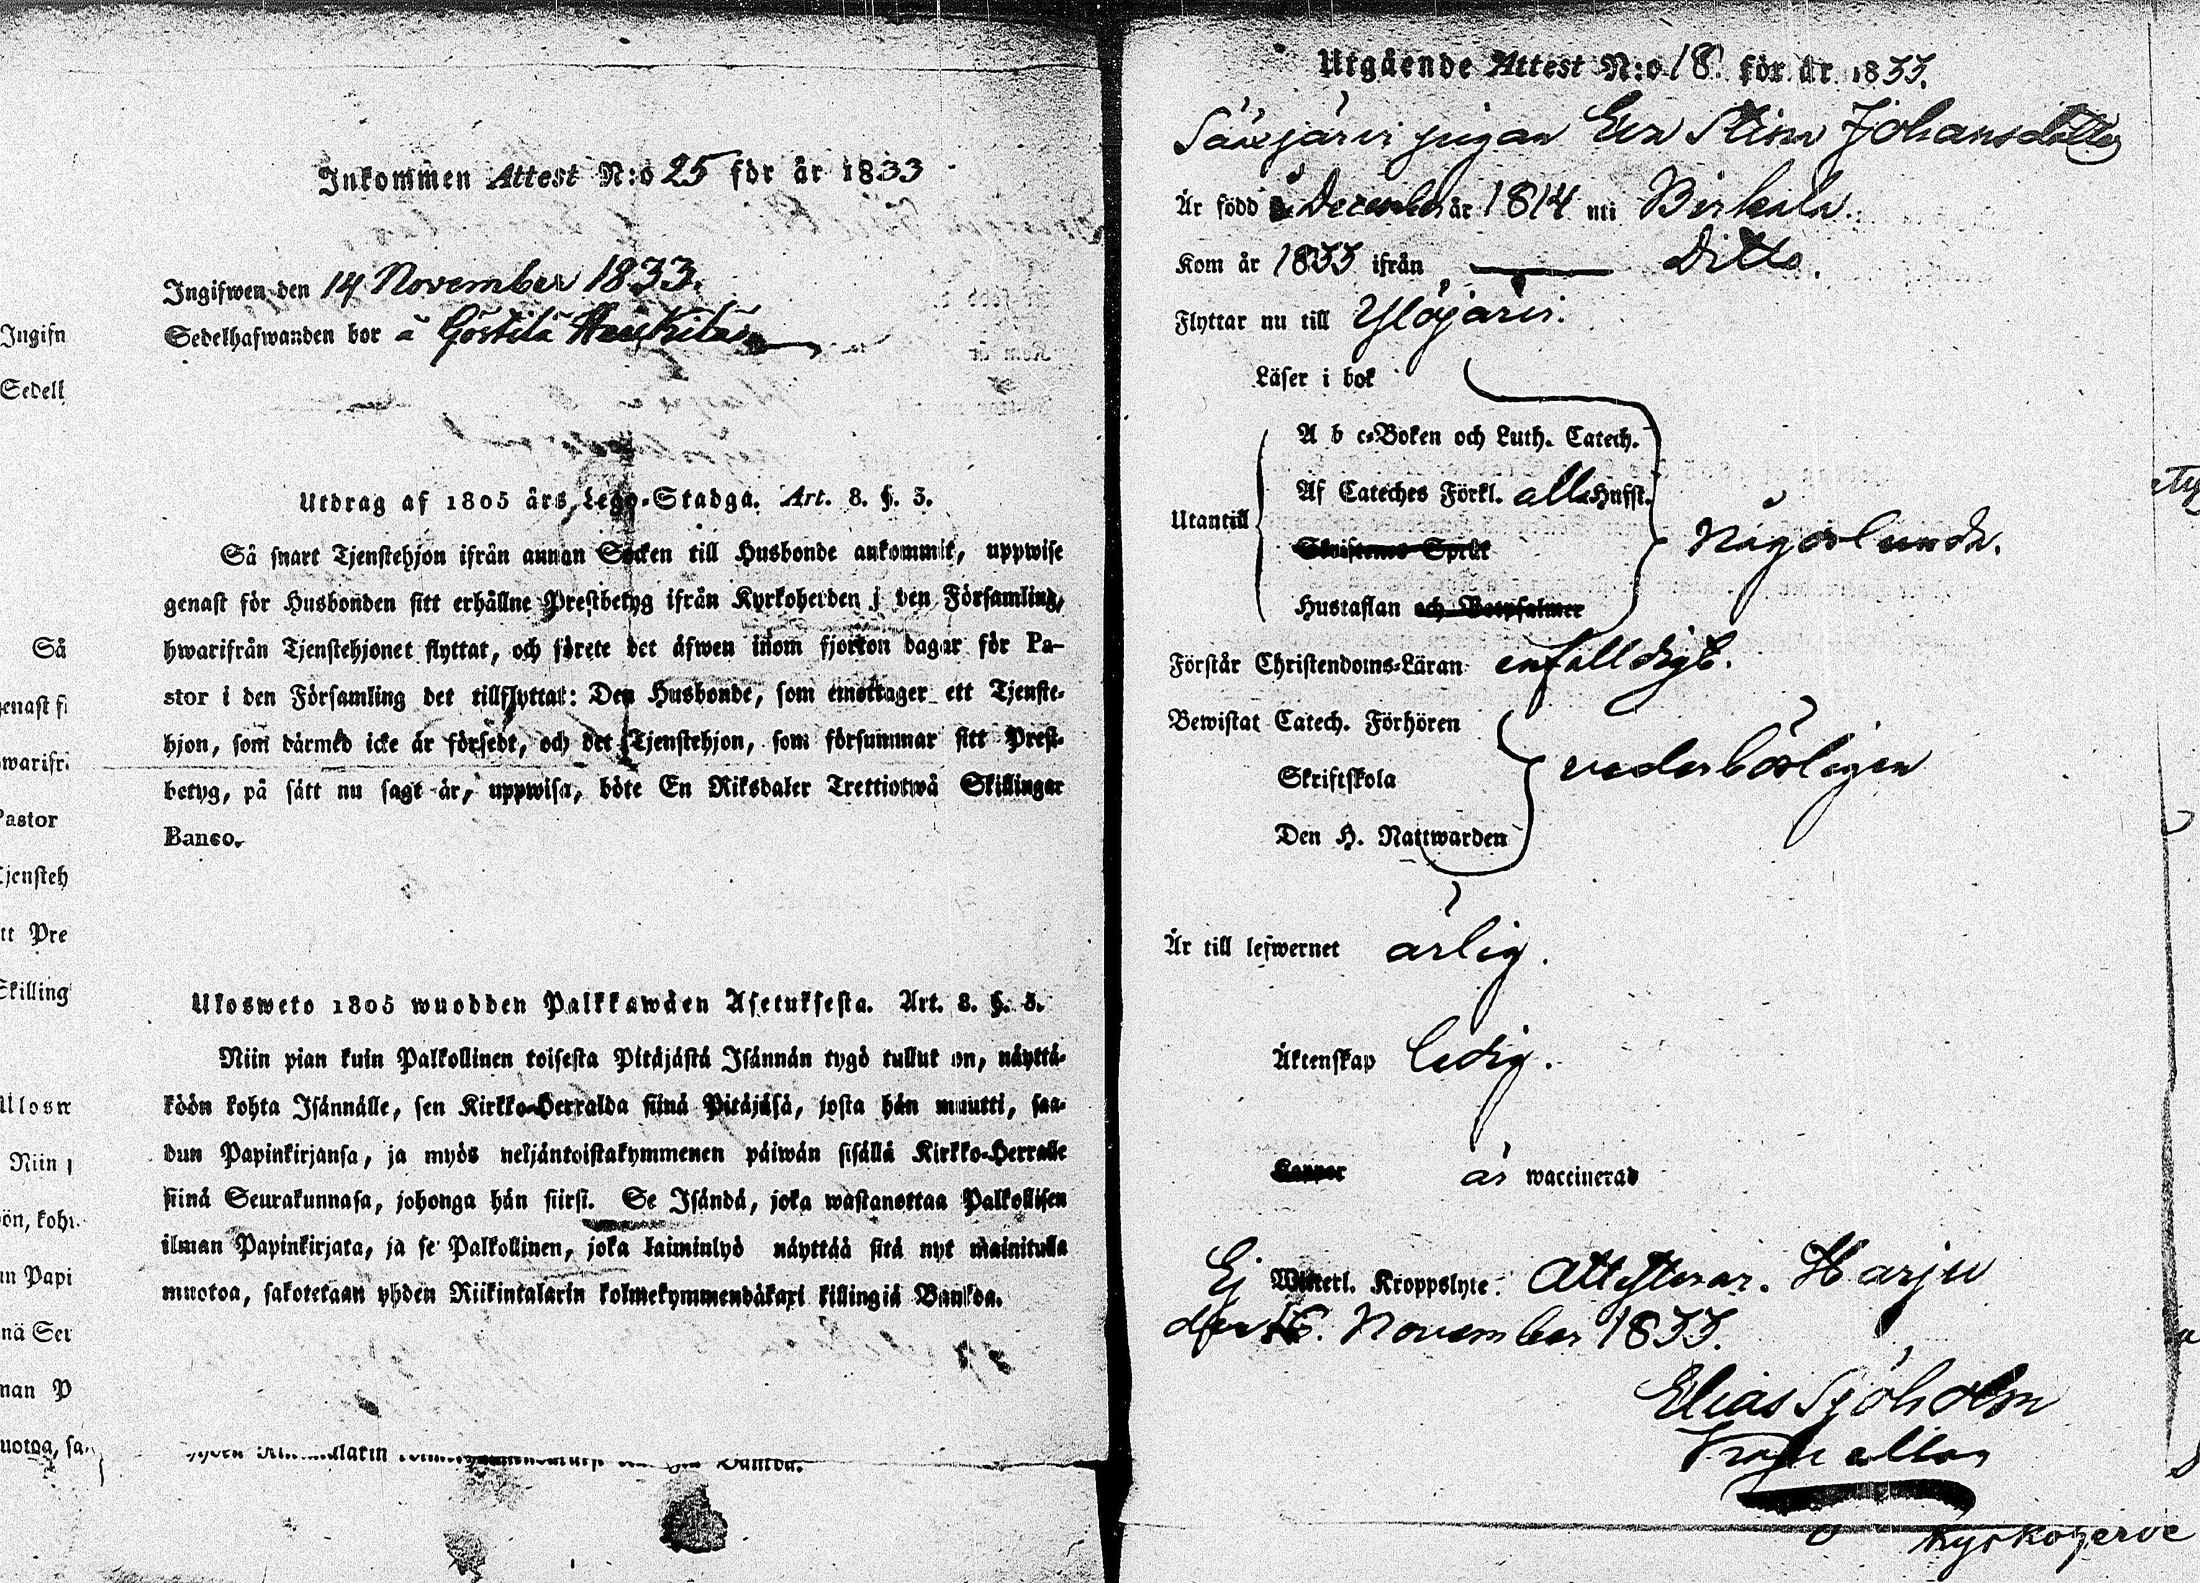 Inkommen Attest N:o 25 för år 1833
Ingifwen den 14 November 1833.
Sedelhafwanden bor å Göstilä
Utdrag af 1805 års Lego-Stadga. Art. 8. §. 3.
Så snart Tjenstehjon ifrån annan Socken till Husbonde ankommit, uppwise
genast för Husbonden sitt erhållne Prestbetyg ifrån Kyrkoherden i den Församling,
hwarifrån Tjenstehjonet flyttat, och förete det äfwen inom fjorton dagar för Pa-
stor i den Församling det tillflyttat: Den Husbonde, som emottager ett Tjenste-
hjon, som därmed icke är försedt, och det Tjenstehjon, som försummar sitt Prest-
betyg, på sätt nu sagt är, uppwisa, böte En Riksdaler Trettiotwå Skillingar
Banco.
Ulosweto 1805 wuodden Palkkawäen Asetuksesta. Art. 8. §. 3.
Niin pian kuin Palkollinen toisesta Pitäjästä Isännän tygö tullut on, näyttä-
köön kohta Isännälle, sen Kirkko-Herralda siinä Pitäjäsä, josta hän muutti, saa-
dun Papinkirjansa, ja myös neljäntoistakymmenen päiwän sisällä Kirkko-Herralle
siinä Seurakunnasa, johonga hän siirsi. Se Isändä, joka wastanottaa Palkollisen
ilman Papinkirjata, ja se Palkollinen, joka laiminlyö näyttää sitä nyt mainitulla
muotoa, sakotetaan yhden Riikintalarin kolmekymmendäkaxi killingiä Bankoa.
Ingifn
Sedell
Så
genast fi
Pastor
Tjensteh
tt Pre
Skilling
Niin
un Papi
nä Ser
nan P
uotoa, sa
Utgående Attest N:o 18. för år 1833.
Säxjärvi pigan Eva Stina Johansdotter
Är född December år 1814 uti Birkala.
Kom år 1833 ifrån Ditto.
Flyttar nu till Ylöjärvi.
Läser i bok
A b c-Boken och Luth. Catech.
Af Cateches Förkl. alla Hufst.
Utantill
Någorlunda.
Skriftenes Språk
Hustaflan och Botpsalmer
Förstår Christendoms-Läran enfalldigt.
Bewistat Catech. Förhören
Skriftskola
vederbörligen
Den H. Nattwarden
Är till lefwernet ärlig.
Äktenskap ledig.
Koppor är waccinerad
Ej Witterl. Kroppslyte. Attesterar. Harju
den November 1833.
Elias Sjöholm